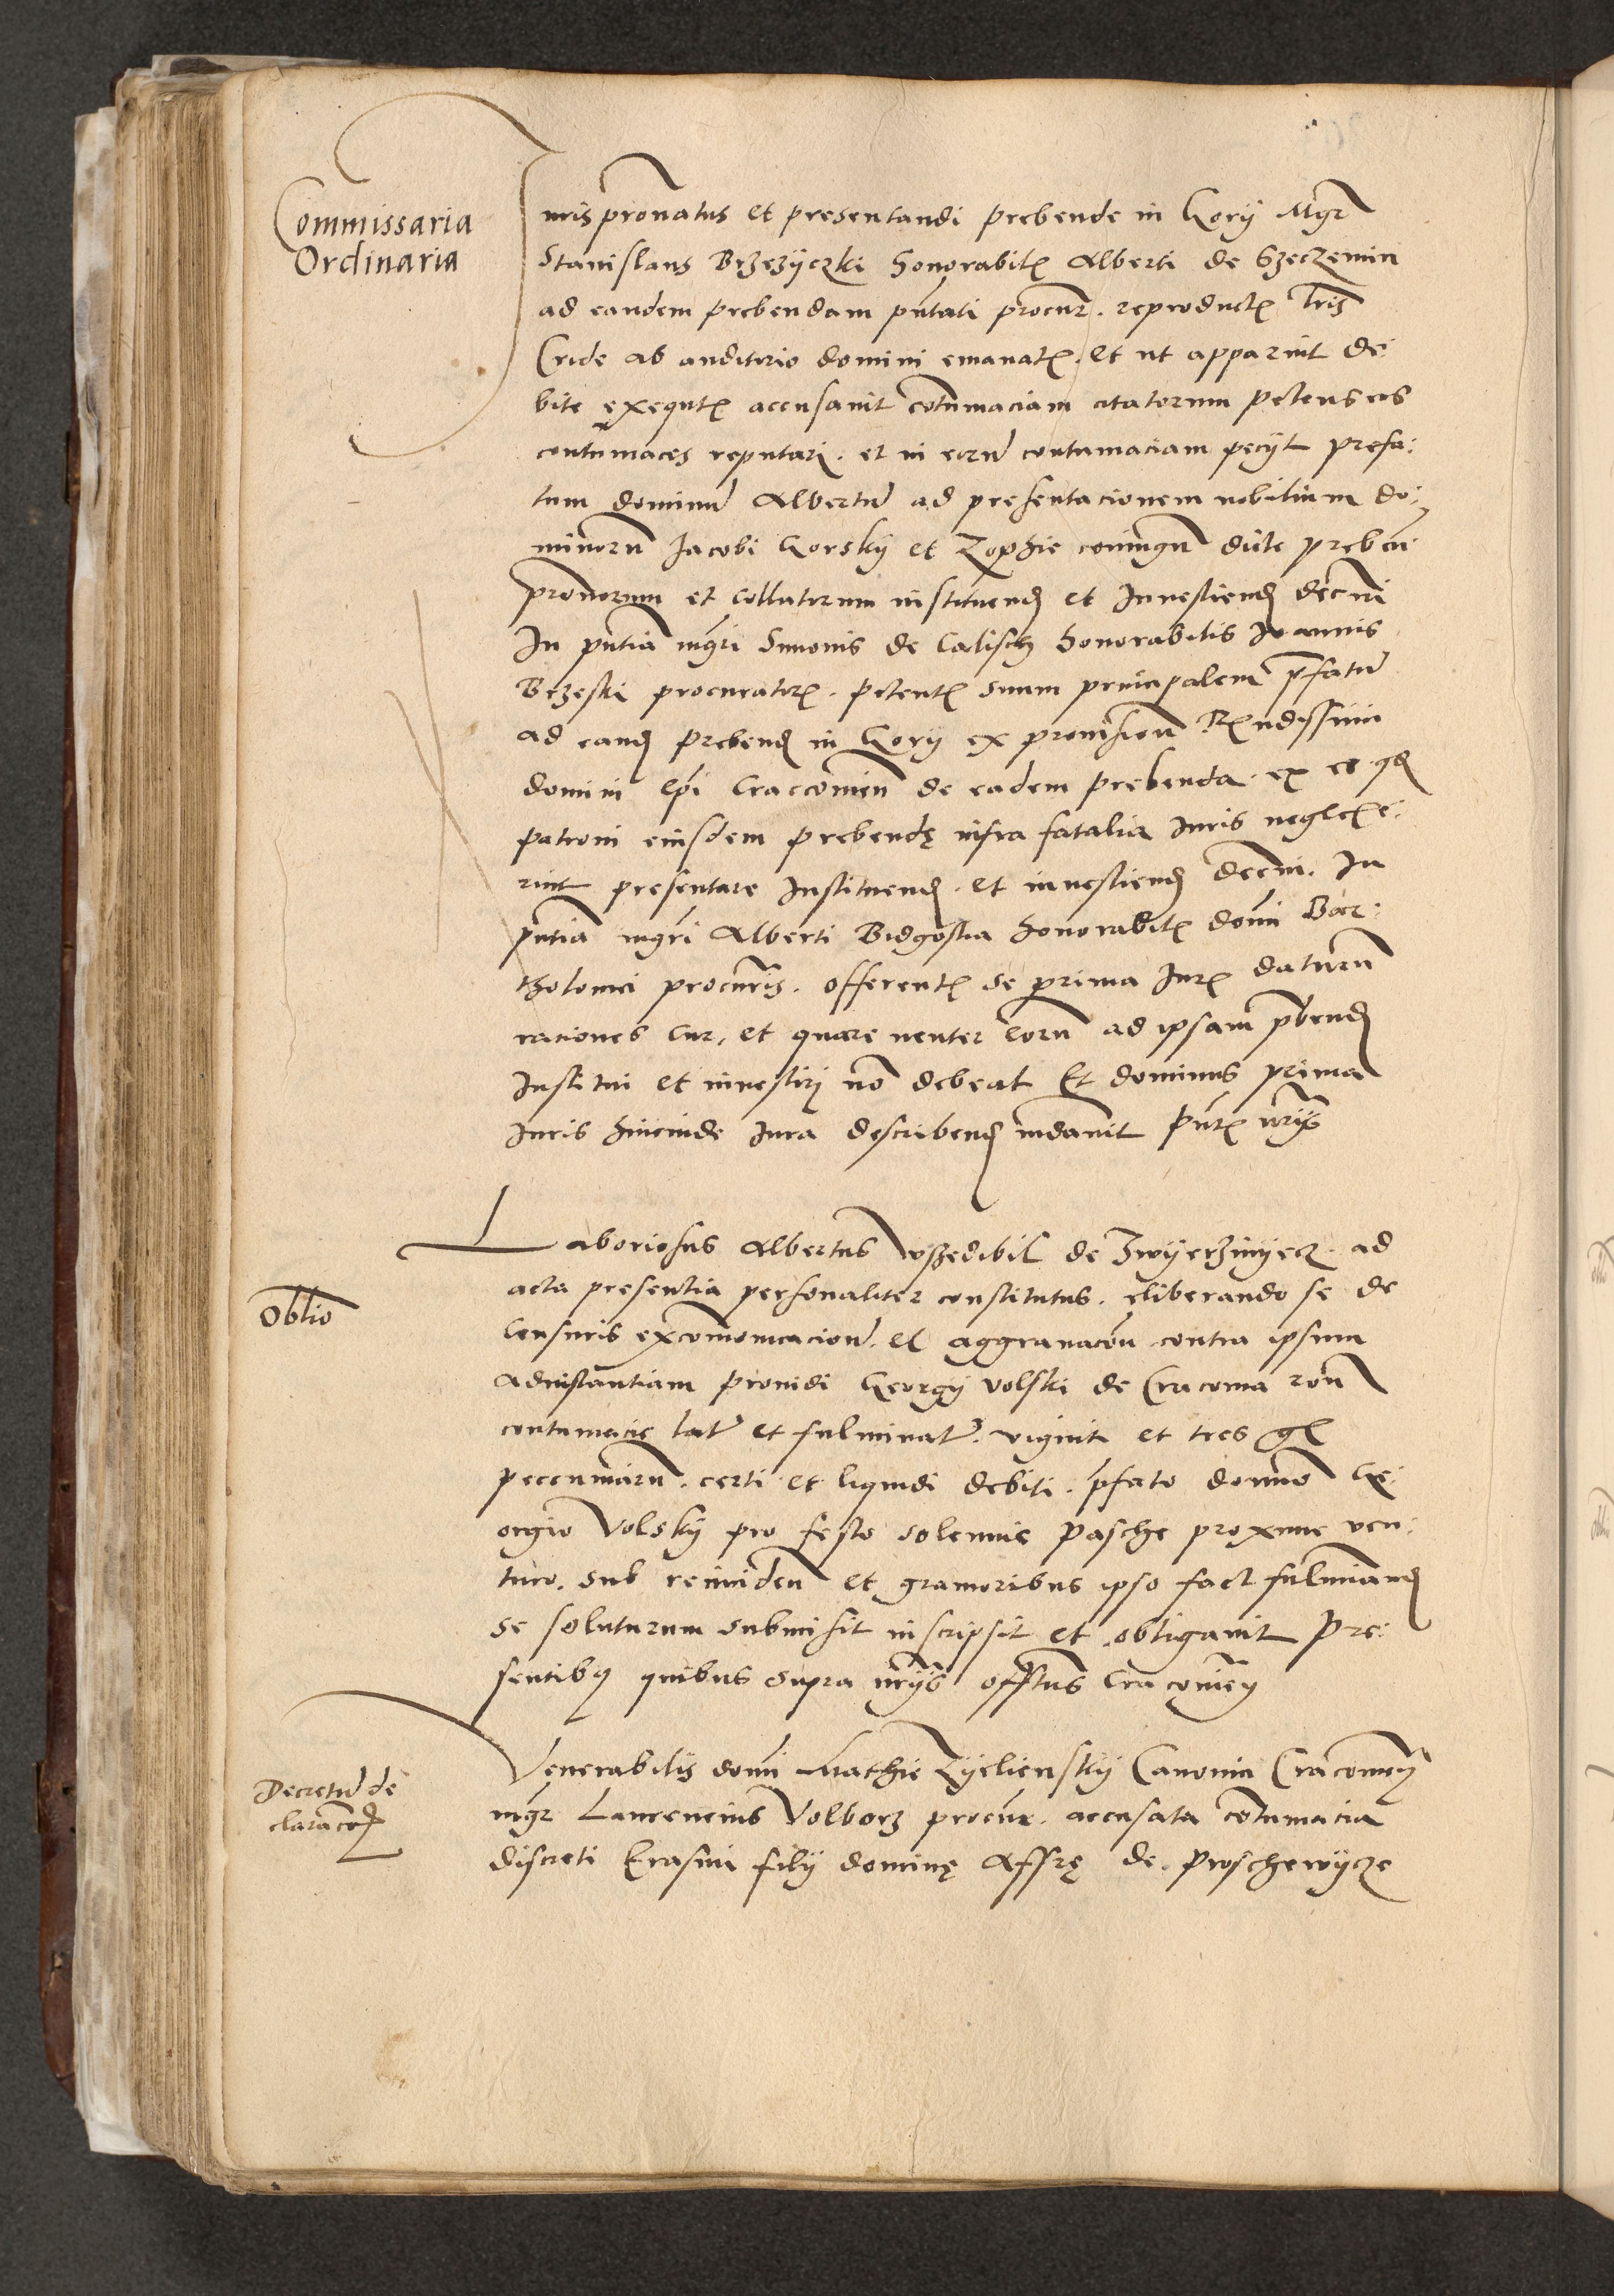 Commissaria
Ordinaria
Juris pronatus et presentandi prebende in Gory Mgr
Stanislaus Brzezyczki honorabil Alberti de Szeczemin
ad eandem prebendam pntati procur. reproductis lris
Cride ab auditorio domini emanat. et ut apparuit de
bite exequt accusavit cotumaciam citatorum petens eos
contumaces reputari. et in eorum contumaciam petyt prefa:
tum dominum Albertum ad presentacionem nobilium do:
minorum Jacobi Gorsky et Zophie coniugum dicte preben
pronorum et collatorum instituend et Investiend decerni
In pntia mgri Simonis de Calisch honorabilis Joannis
Brzeski procurator. petent suum principalem pfatum
ad eand prebend in Gory ex provision Rndissimi
domini Epi Craccovien de eadem prebenda. ex eo qd
patroni eiusdem prebendę infra fatalia Juris neglexe:
rint presentare Instituend. et investiend decerni. In
pntia mgri Alberti Bidgostia honorabil domi Bar:
tholomei procuris. offerent se prima Juris daturum
raciones cur, et quare neuter eorum ad ipsam pbend
Institui et investiri no debeat Et dominus prima
Juris hincinde Jura describend mdavit pnt nrijs
Laboriosus Albertus Wssedibil de Zwyerzinyecz. ad
Oblio
acta presentia personaliter constitutus. eliberando se de
Censuris excomonicacionum. et aggravacon contra ipsum
ad instantiam providi Georgy Volski de Cracovia ron
contumacię lat et fulminat. viginti et tres
peccuniarum. certi et liquidi debiti. pfato domino Ge:
orgio Volsky pro festo solemnie Pasche proxime ven:
turo. sub reinciden et gravioribus ipso fact fulminand
se soluturum submisit inscripsit et obligavit Pre:
sentibus quibus supra nrijs offitus Cracovien
Venerabilis domi Mathie Zyeliensky Canonici Cracovien
Decretum de
claracos
mgr Laurencius Volborz procur. accusata cotumacia
discreti Erasmi filij dominę Affrę de. Proschewycze